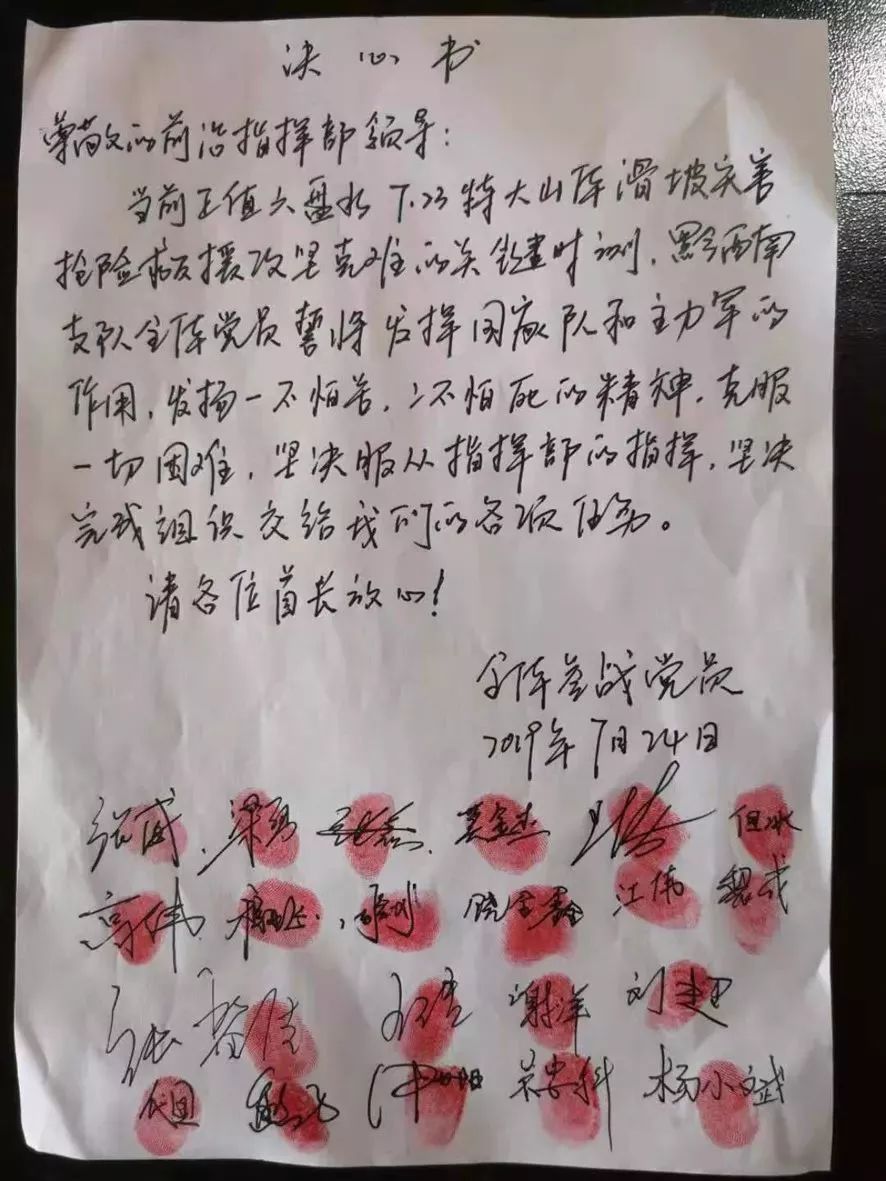 决心书
尊敬的前沿指挥部领导：
当前正值六盘水7.23特大山体滑坡灾害
抢险救援攻坚克难的关键时刻，黔西南
支队全体党员誓将发挥国家队和主力军的
作用，发扬一不怕苦，二不怕死的精神，克服
一切困难，坚决服从指挥部的指挥，坚决
完成组织交给我们的各项任务。
请各位首长放心！
全体参战党员
2019年7月24日
张威 梁勇
高伟 江伟 黎成
张春佳 谢洋 刘翅
杨小斌